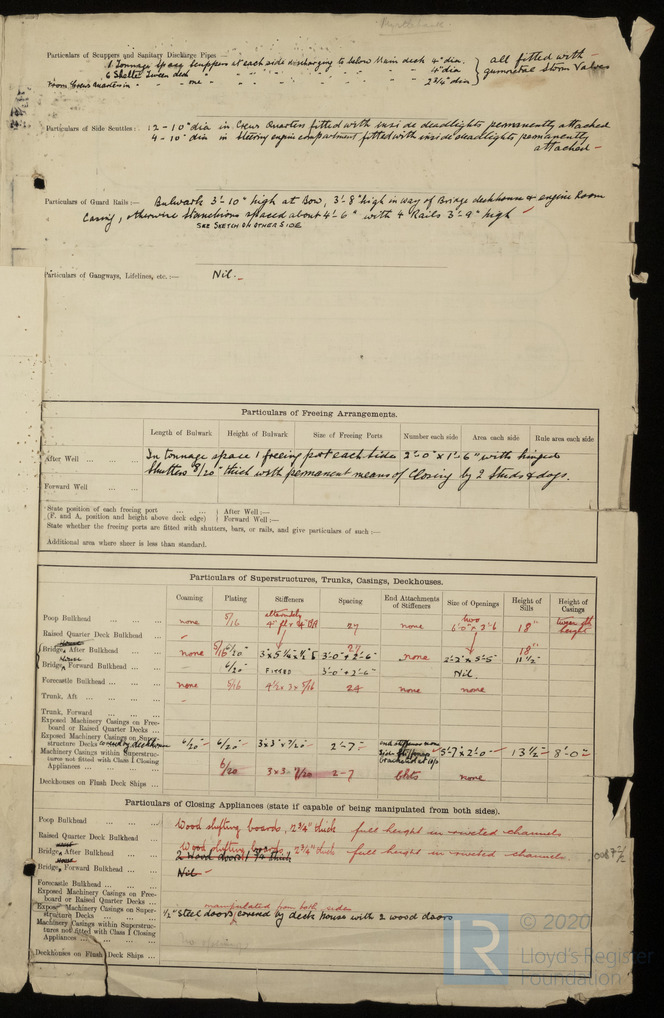 Particulars of Scuppers and Sanitary Discharge Pipes —
1 Tonnage space scuppers at each side discharging to below Main deck 4" dia.
6 Shelter Tween deck " " " " " " " 4" dia
From Crews Quarters in " — one — " " " " " 2 3/4" dia
} all fitted with
gunmetal Storm Valves
Particulars of Side Scuttles: 12 - 10" dia in Crews Quarters fitted with inside deadlights permanently attached
4 - 10" dia in Steering engine compartment fitted with inside deadlights permanently
attached —
Particulars of Guard Rails :— Bulwark 3'-10" high at Bow, 3'-8" high in way of Bridge deckhouse & engine room
Casing, otherwise Stanchions spaced about 4'-6" with 4 Rails 3'-9" high
SEE SKETCH ON OTHER SIDE
Particulars of Gangways, Lifelines, etc. :— Nil.
Particulars of Freeing Arrangements.
Length of Bulwark Height of Bulwark Size of Freeing Ports Number each side Area each side Rule area each side
After Well ... ... In tonnage space 1 freeing port each side 2'-0" x 1'-6" with hinged
Shutters 8/20" thick with permanent means of closing by 2 Studs & dogs.
Forward Well ...
State position of each freeing port ... ... } After Well :—
(F. and A. position and height above deck edge) } Forward Well :—
State whether the freeing ports are fitted with shutters, bars, or rails, and give particulars of such :—
Additional area where sheer is less than standard.
Particulars of Superstructures, Trunks, Casings, Deckhouses.
Coaming Plating Stiffeners Spacing End Attachments of Stiffeners Size of Openings Height of Sills Height of Casings
alternately two
Poop Bulkhead ... ... ... none 5/16 27 none 18"
Raised Quarter Deck Bulkhead ...
House
Bridge After Bulkhead ... ... none 5/16 6/20 none 18"
House
Bridge Forward Bulkhead ... ... 6/20" FITTED 3'-0" & 2'-6" Nil.
Forecastle Bulkhead ... ... none 5/16 24 none none
Trunk, Aft ... ... ...
Trunk, Forward ... ... ...
Exposed Machinery Casings on Free-
board or Raised Quarter Decks ...
Exposed Machinery Casings on Super-
structure Decks covered by deckhouse 6/20" 6/20" 3x3x7/20 2'-7" 5'-7 x 2'-0" 13 1/2" 8'-0"
Machinery Casings within Superstruc-
tures not fitted with Class I Closing
Appliances ... ... ... 6/20 3x3-7/20 2-7 none
Deckhouses on Flush Deck Ships ...
Particulars of Closing Appliances (state if capable of being manipulated from both sides).
Poop Bulkhead ... ... ... Wood shifting boards, 2 3/4" thick full height in riveted channels
Raised Quarter Deck Bulkhead ...
Bridge After Bulkhead ... ... Wood shifting boards 2 3/4" thick full height in riveted channels.
House
Bridge Forward Bulkhead ... ... Nil —
Forecastle Bulkhead ... ... ...
Exposed Machinery Casings on Free-
board or Raised Quarter Decks ...
manipulated from both sides
Exposed Machinery Casings on Super-
structure Decks ... ... 1/2" steel doors, covered by deck house with 2 wood doors
Machinery Casings within Superstruc-
tures not fitted with Class I Closing
Appliances ... ... ...
Deckhouses on Flush Deck Ships ...
© 2020
LR
Lloyd's Register
Foundation